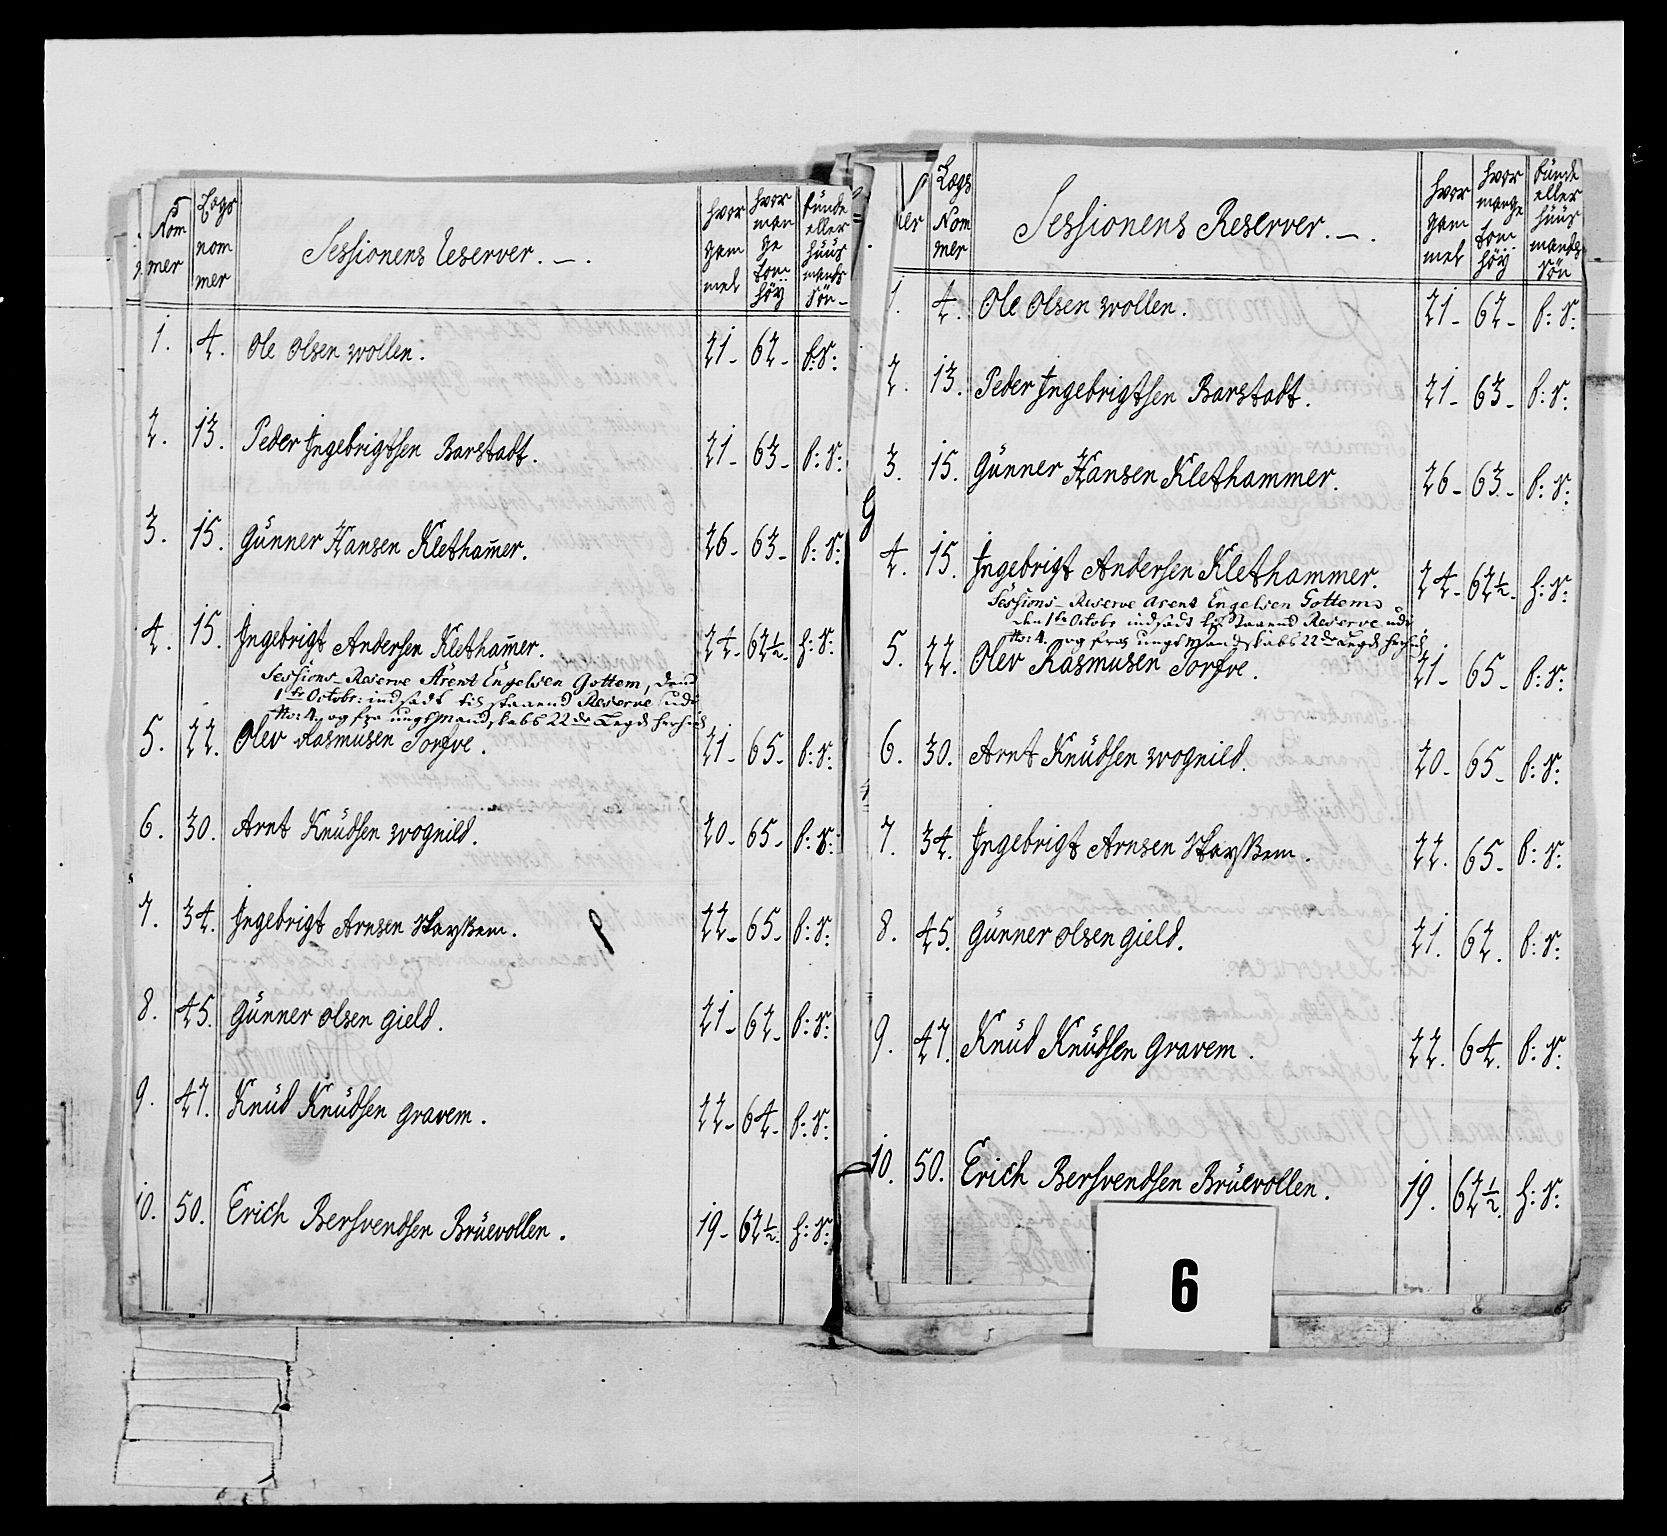 Nom mer | Legs nom mer | Sessionens Reserver. | hvor gam mel | hvor man ge tom: höy | bunde eller huus mands sön
1. | 4. | Ole Olsen Wollen. | 21 | 62 | b: s:
2. | 13. | Peder Ingebrigtsen Barstadt. | 21 | 63 | b: s:
3. | 15. | Günner Hansen Kletham̄er. | 26 | 63 | b: s:
4. | 15. | Ingebrigt Andersen Kletham̄er. | 24 | 62½ | h: s:
Sessions-Reserve Arent Engelsen Gottem, den
1ste Octobr: indsadt til staaend Reserve ude
No: 4. og fra ungt Mandskabs 22de Legd hersid
5. | 22. | Olev Rasmusen Torfve. | 21 | 65 | b: s:
6. | 30. | Arnt Knüdsen Wognild. | 20 | 65 | b: s:
7. | 34. | Ingebrigt Arnsen | 22 | 65 | b: s:
8. | 45. | Günner Olsen Gield. | 21 | 62 | b: s:
9. | 47. | Knüd Knüdsen Gravem. | 22 | 64 | b: s:
10. | 50. | Erich Bersvendsen Brüevollen. | 19 | 62½ | h: s:
mer | Legs Nom mer | Sessionens Reserver. | hvor gam mel | hvor mange tom: höy | bunde eller huus mands sön
1. | 4. | Ole Olsen Wollen. | 21 | 62 | b: s:
2. | 13. | Peder Ingebrigtsen Barstadt. | 21 | 63 | b: s:
3. | 15. | Günner Hansen Klethammer. | 26 | 63 | b: s:
4. | 15. | Ingebrigt Andersen Klethammer. | 24 | 62½ | h: s:
Sessions-Reserve Arent Engelsen Gottem
den 1ste Octobr indsadt til staaend Reserve ude
No: 4. og fra ungt Mandskabs 22de Legd hersid
5. | 22. | Olev Rasmusen Torfve. | 21 | 65 | b: s:
6. | 30. | Arnt Knüdsen Wognild. | 20 | 65 | b: s:
7. | 34. | Ingebrigt Arnsen | 22. | 65 | b: s:
8. | 45. | Günner Olsen Gield. | 21. | 62. | b: s:
9. | 47. | Knüd Knüdsen Gravem. | 22. | 64. | b: s:
10. | 50. | Erich Bersvendsen Brüevollen. | 19. | 62½. | h: s:
6